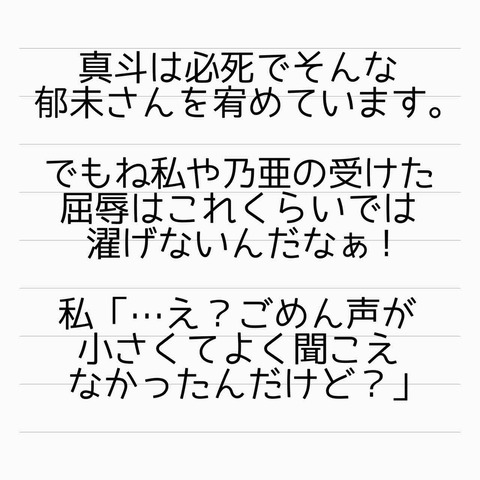 真斗は必死でそんな
郁未さんを宥めています。
でもね私や乃亜の受けた
屈辱はこれくらいでは
濯げないんだなぁ！
私「…え？ごめん声が
小さくてよく聞こえ
なかったんだけど？」